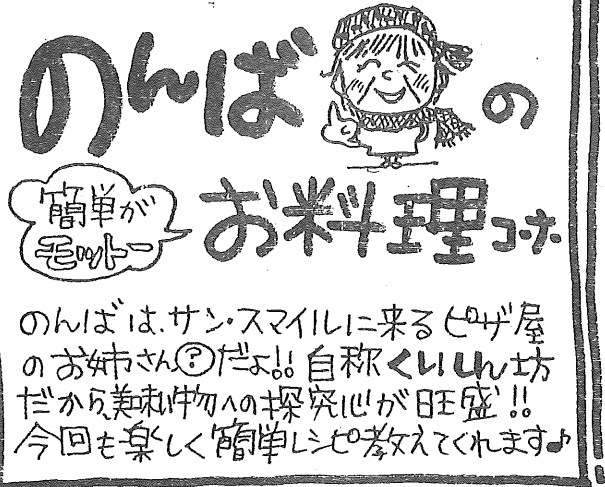 のんばの
簡単が
モットー
お料理コーナー
のんばは、サン・スマイルに来るピザ屋
のお姉さん?だよ!!自称くいしん坊
だから、美味い物への探究心が旺盛!!
今回も楽しく簡単レシピ教えてくれます♪